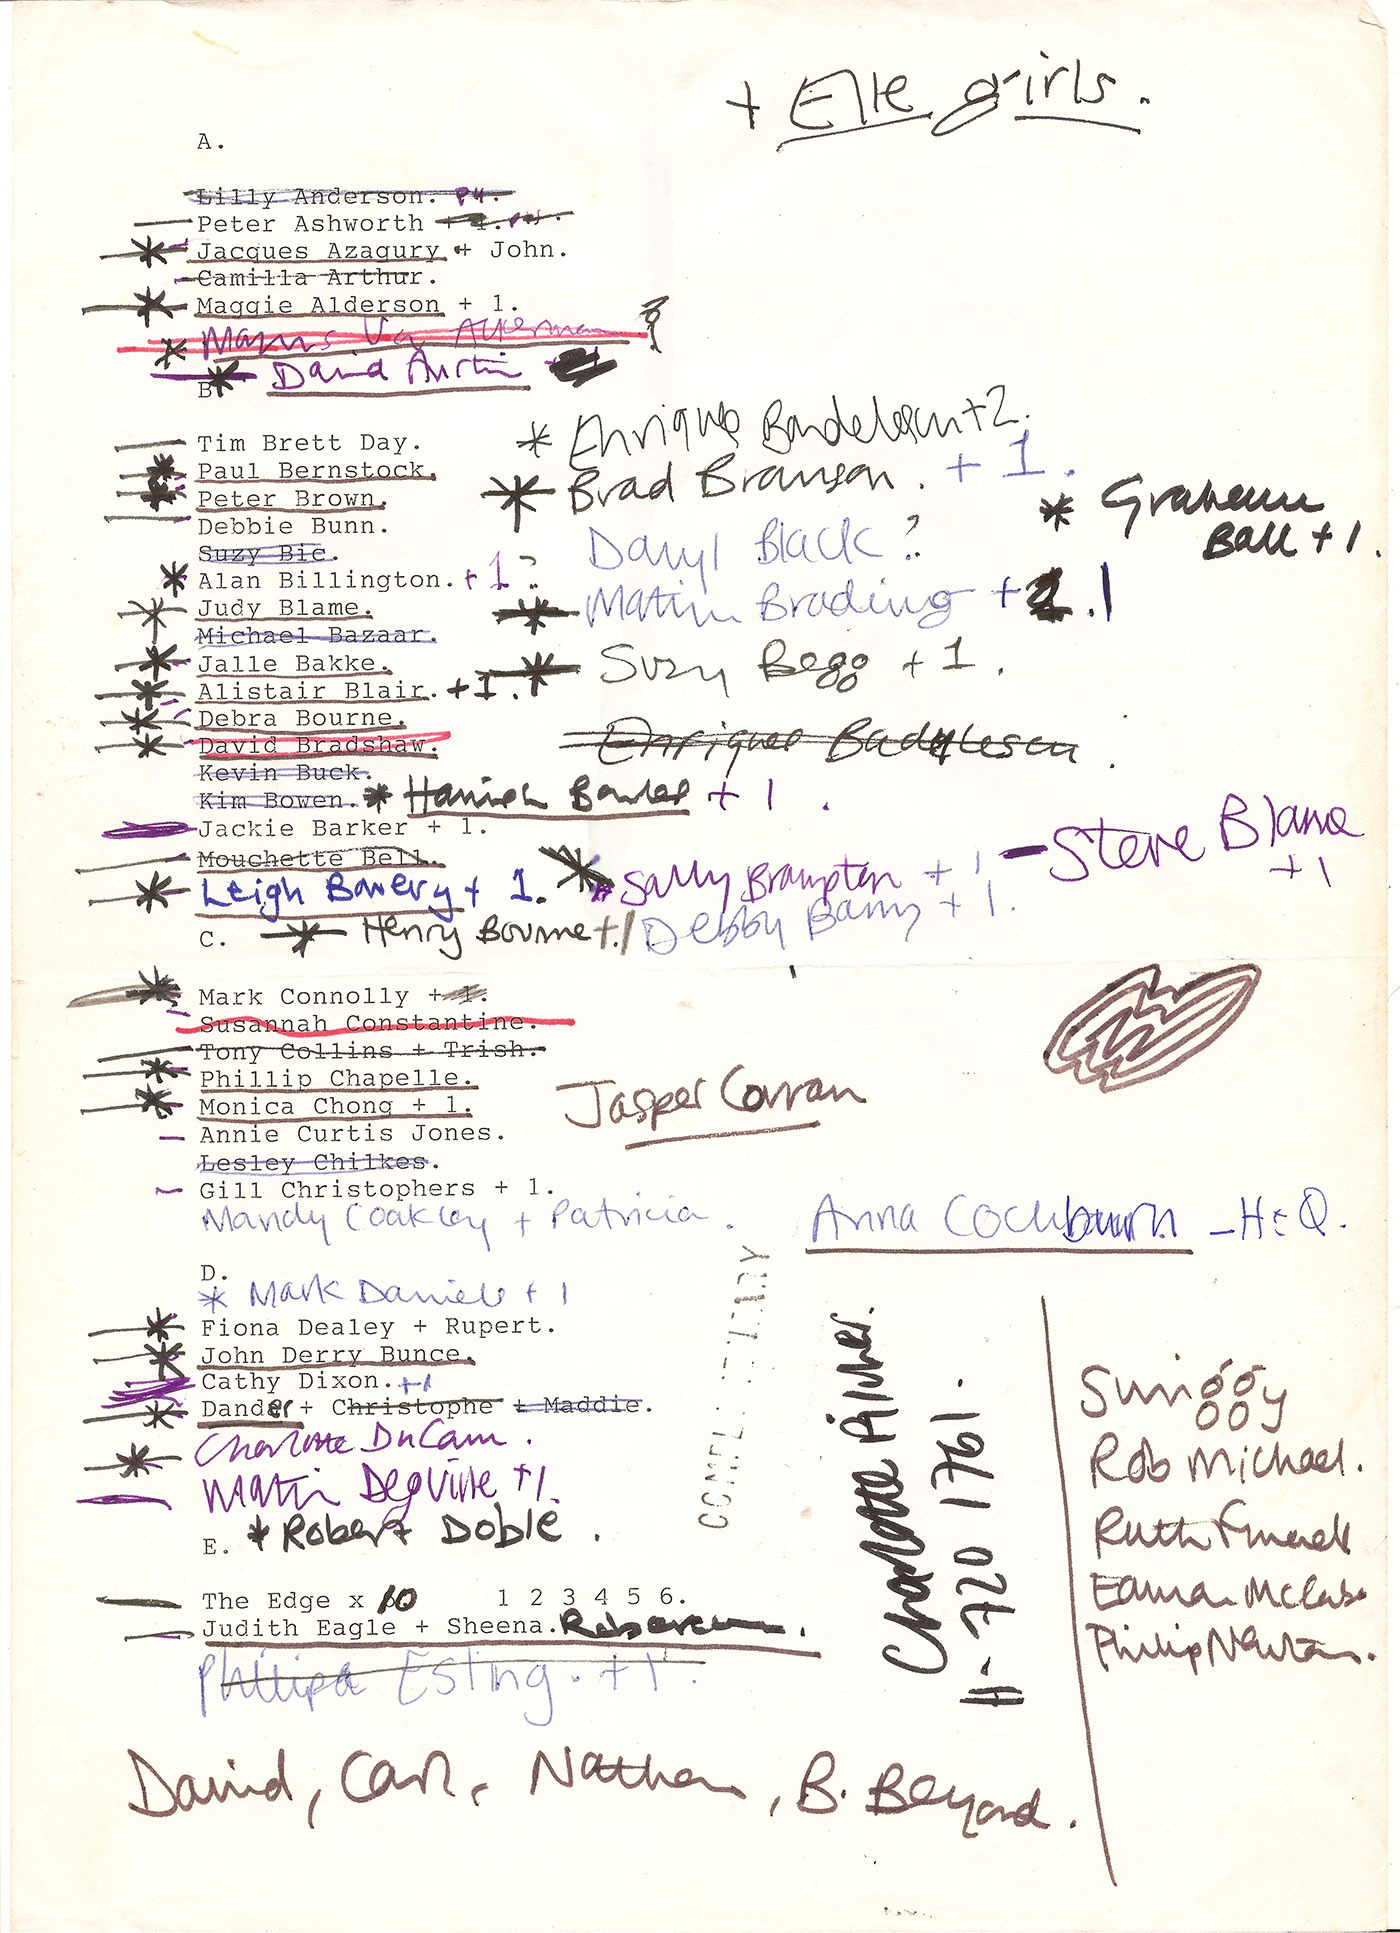 + Elle girls.
A.
Lilly Anderson.
Peter Ashworth + 1.
Jacques Azagury + John.
Camilla Arthur.
Maggie Alderson + 1.
David Austin
B
Tim Brett Day.
* Enrique Badelescu + 2.
Paul Bernstock.
Brad Branson. + 1.
Peter Brown.
* Graham
Ball + 1.
Debbie Bunn.
Daryl Black ?
Suzy Bie.
Alan Billington. + 1 ?
Judy Blame.
Matin Brading + 1
Michael Bazaar.
Jalle Bakke.
Suzy Begg + 1.
Alistair Blair. + 1.
Debra Bourne.
David Bradshaw.
Enrique Badelescu.
Kevin Buck.
Kim Bowen. * Hamish Bowles + 1.
Jackie Barker + 1.
- Steve Blame
+ 1
Mouchette Bell.
Leigh Bowery + 1. * Sally Brampton + 1
C. * Henry Bourne + 1 Debby Barry + 1.
Mark Connolly + 1.
Susannah Constantine.
Tony Collins + Trish.
Phillip Chapelle.
Monica Chong + 1.
Jasper Conran
Annie Curtis Jones.
Lesley Chilkes.
Gill Christophers + 1.
Mandy Coakley + Patricia.
Anna Cockburn - H & Q.
D.
* Mark Daniels + 1
Fiona Dealey + Rupert.
John Derry Bunce.
Cathy Dixon. + 1
Dander + Christophe + Maddie.
Charlotte DuCann.
Matin Degville + 1.
E. * Robert Doble.
The Edge x 10 1 2 3 4 5 6.
Judith Eagle + Sheena.
Philipa Esling. + 1.
David, Carl, Nathan, B. Beyond.
Charlotte
H - 720 1761.
Swiggy
Rob Michael.
Ruth
Eamon McCabe
Philip Newton.